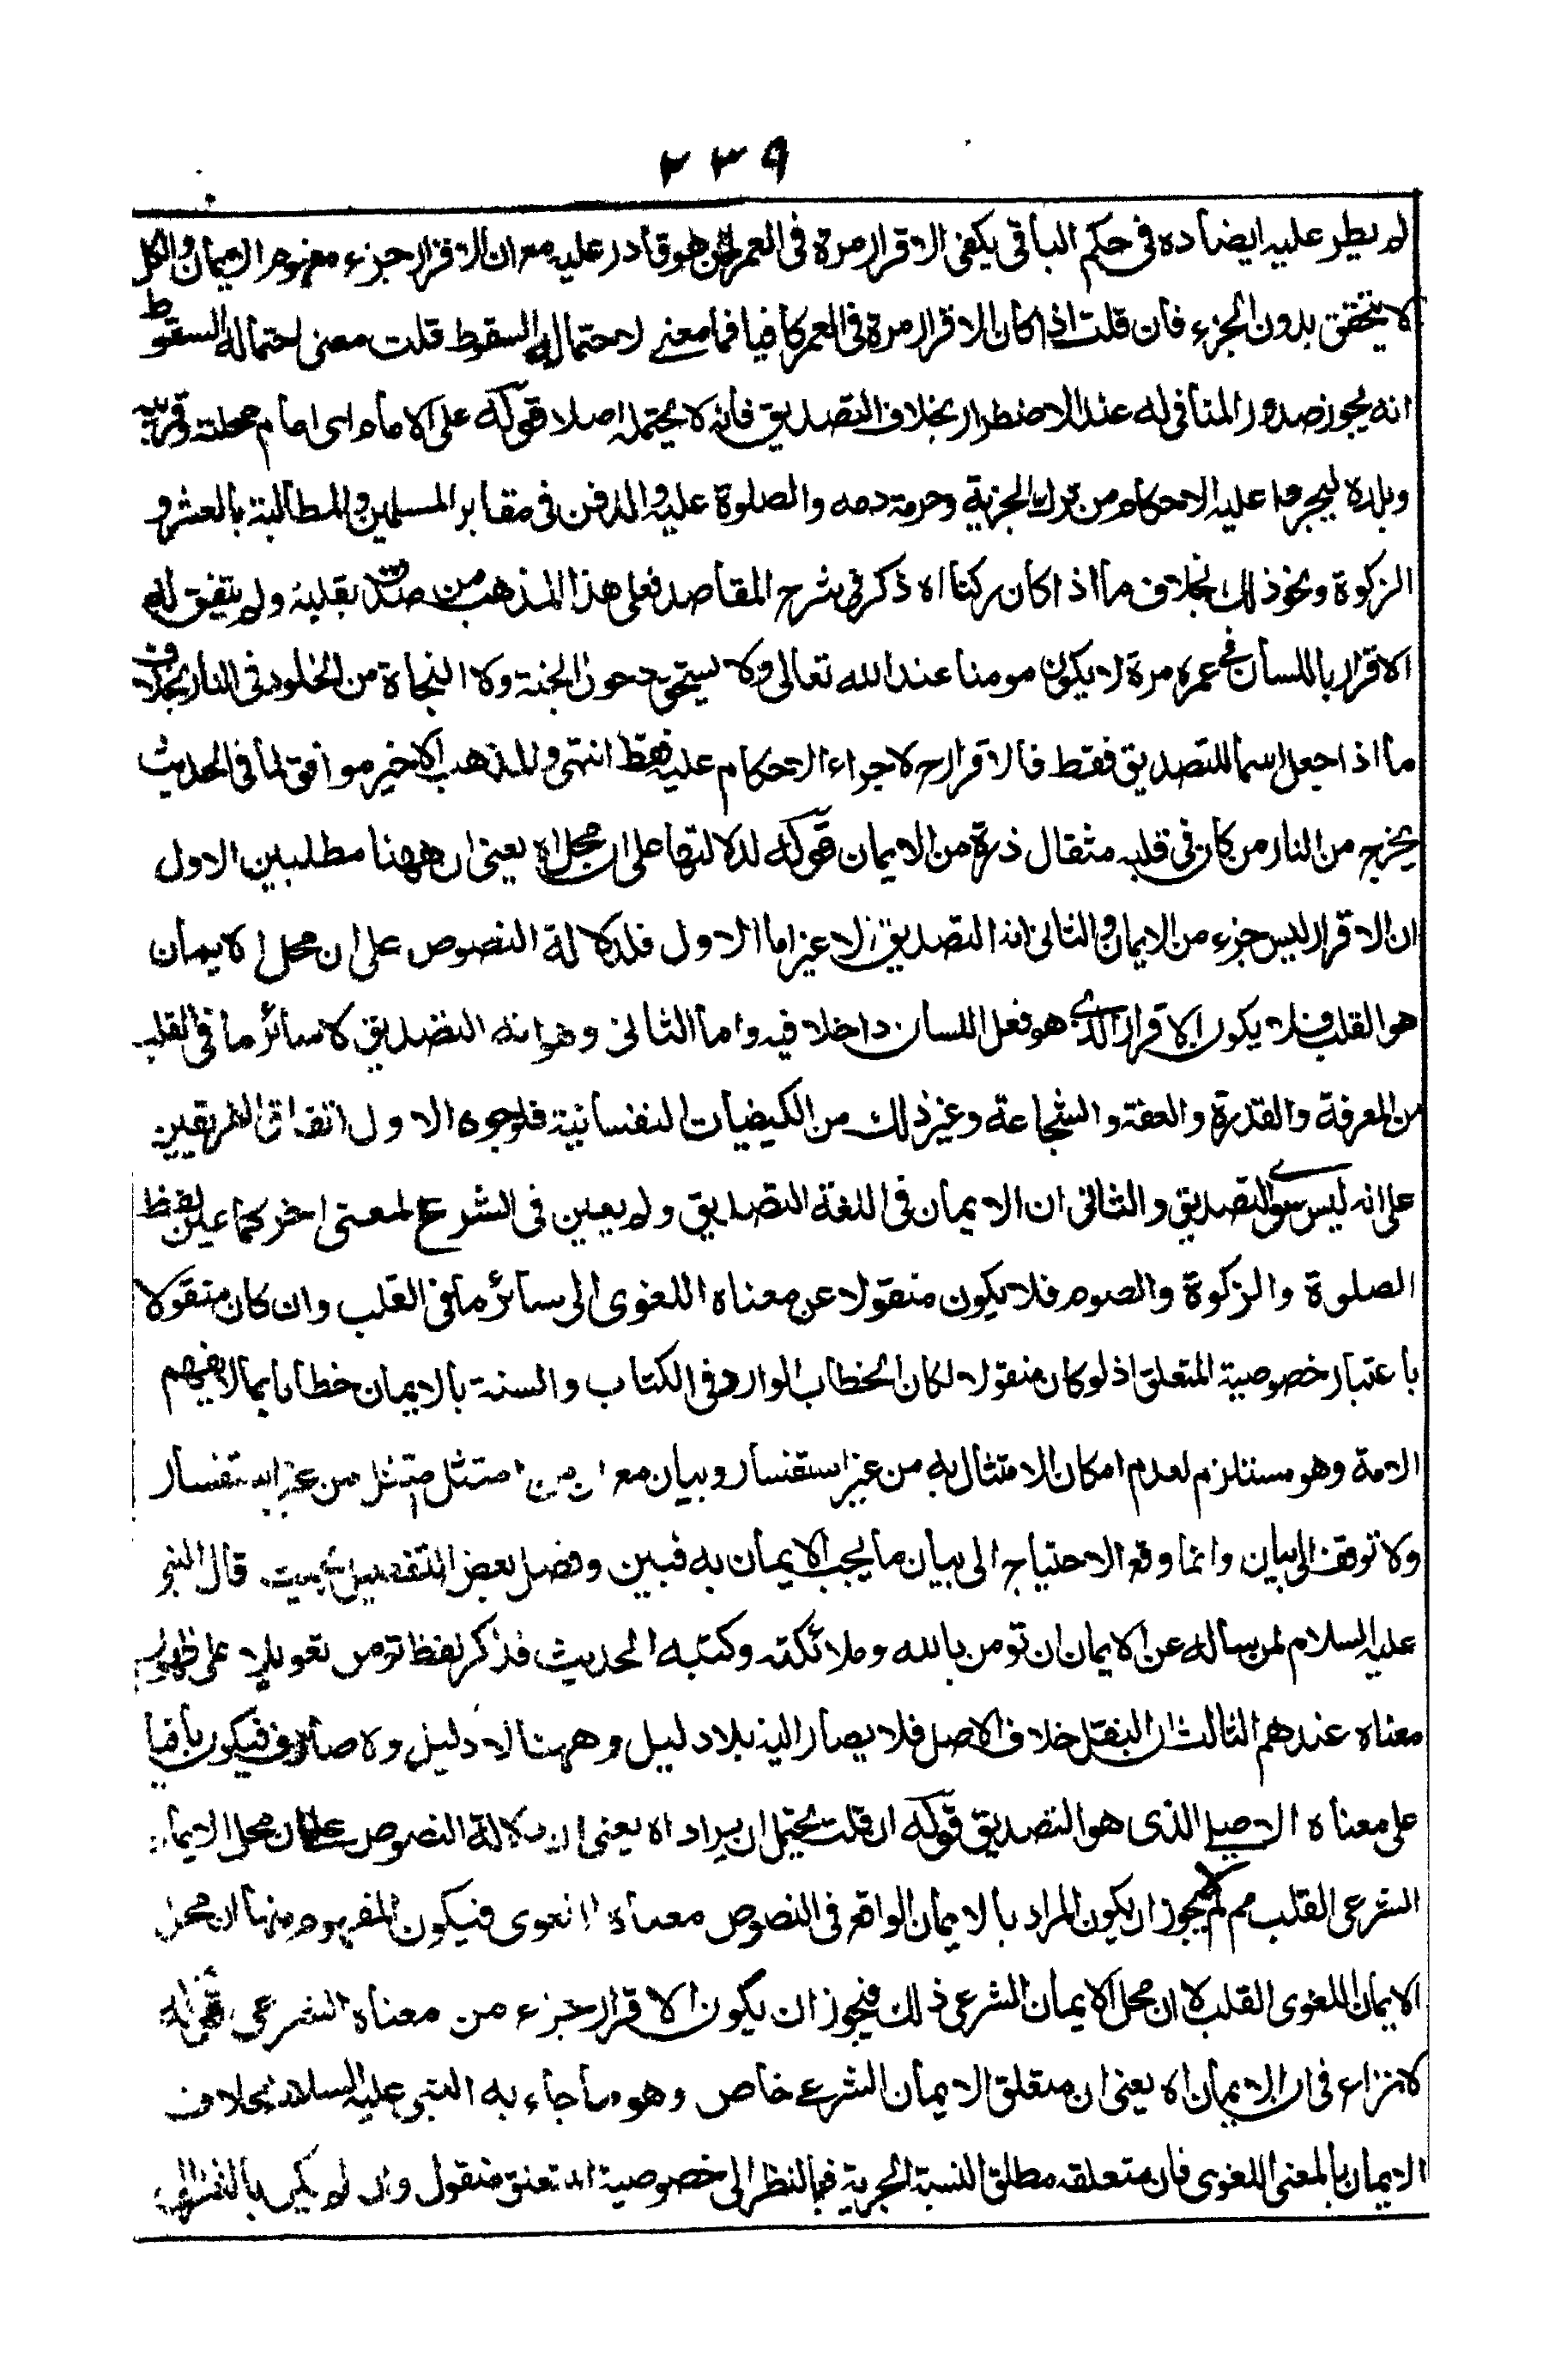 ٢٣٩
لم يطر عليه ما يضاده فى حكم الباقى يكفى الاقرار مرة فى العمر لمن هو قادر عليه مع ان الاقرار جزء مفهوم الايمان والكل
لا يتحقق بدون الجزء فان قلت اذا كان الاقرار مرة فى العمر كافيا فما معنے لاحتماله السقوط قلت معنى احتماله السقوط
انه يجوز صدور المنافى له عند الاضطرار بخلاف التصديق فانه لا يحتمله اصلا قوله على الامام اى امام محلته وقريته
وبلده ليجروا عليه الاحكام من ترك الجزية وحرمة دمه والصلوة عليه والدفن فى مقابر المسلمين والمطالبة بالعشر و
الزكوة ونحو ذلك بخلاف ما اذا كان ركنا اه ذكر فى شرح المقاصد فعلى هذا المذهب من صدق بقلبه ولم يتفق له
الاقرار باللسان فى عمره مرة لا يكون مومنا عند الله تعالى ولا يستحق دخول الجنة ولا النجاة من الخلود فى النار بخلاف
ما اذا جعل اسما للتصديق فقط فالاقرار ح لاجراء الاحكام عليه فقط انتهى والمذهب الاخير موافق لما فى الحديث
يخرج من النار من كان فى قلبه مثقال ذرة من الايمان قوله لدلالتها على ان محل اه يعنى ان ههنا مطلبين الاول
ان الاقرار ليس جزء من الايمان والثانى انه التصديق لا غير اما الاول فلدلالة النصوص على ان محل الايمان
هو القلب فلا يكون الاقرار الذى هو فعل اللسان داخلا فيه واما الثانى وهو انه التصديق لا سائر ما فى القلب
من المعرفة والقدرة والعفة والشجاعة وغير ذلك من الكيفيات النفسانية فلوجوه الاول اتفاق الفريقين
على انه ليس سوى التصديق والثانى ان الايمان فى اللغة التصديق ولم يعين فى الشرع لمعنى اخر كما عين لفظ
الصلوة والزكوة والصوم فلا يكون منقولا عن معناه اللغوى الى سائر ما فى القلب وان كان منقولا
باعتبار خصوصية المتعلق اذ لو كان منقولا لكان الخطاب الوارد فى الكتاب والسنة بالايمان خطابا بما لا يفهم
الامة وهو مستلزم لعدم امكان الامتثال به من غير استفسار وبيان مع ان من امتثل امتثل من غير استفسار
ولا توقف الى بيان وانما وقع الاحتياج الى بيان ما يجب الايمان به فبين وفصل بعض التفصيل بحيث قال النبى
عليه السلام لمن ساله عن الايمان ان تومن بالله وملائكته وكتبه الحديث فذكر لفظ تومن تعويلا على ظهور
معناه عندهم الثالث ان النقل خلاف الاصل فلا يصار اليه بلا دليل وههنا لا دليل ولا صارف فيكون باقيا
على معناه الاصلے الذى هو التصديق قوله ان قلت يحتمل ان يراد اه يعنى ان دلالة النصوص على ان محل الايمان
الشرعى القلب مم لم لا يجوز ان يكون المراد بالايمان الواقع فى النصوص معناه اللغوى فيكون المفهوم منها ان محل
الايمان اللغوى القلب لا ان محل الايمان الشرعى ذلك فيجوز ان يكون الاقرار جزء من معناه الشرعى قوله
لا نزاع فى ان الايمان اه يعنى ان متعلق الايمان الشرعے خاص وهو ما جاء به النبى عليه السلام بخلاف
الايمان بالمعنى اللغوى فان متعلقه مطلق النسبة الخبرية فبالنظر الى خصوصية المتعلق منقول وان لم يكن بالنظر الى